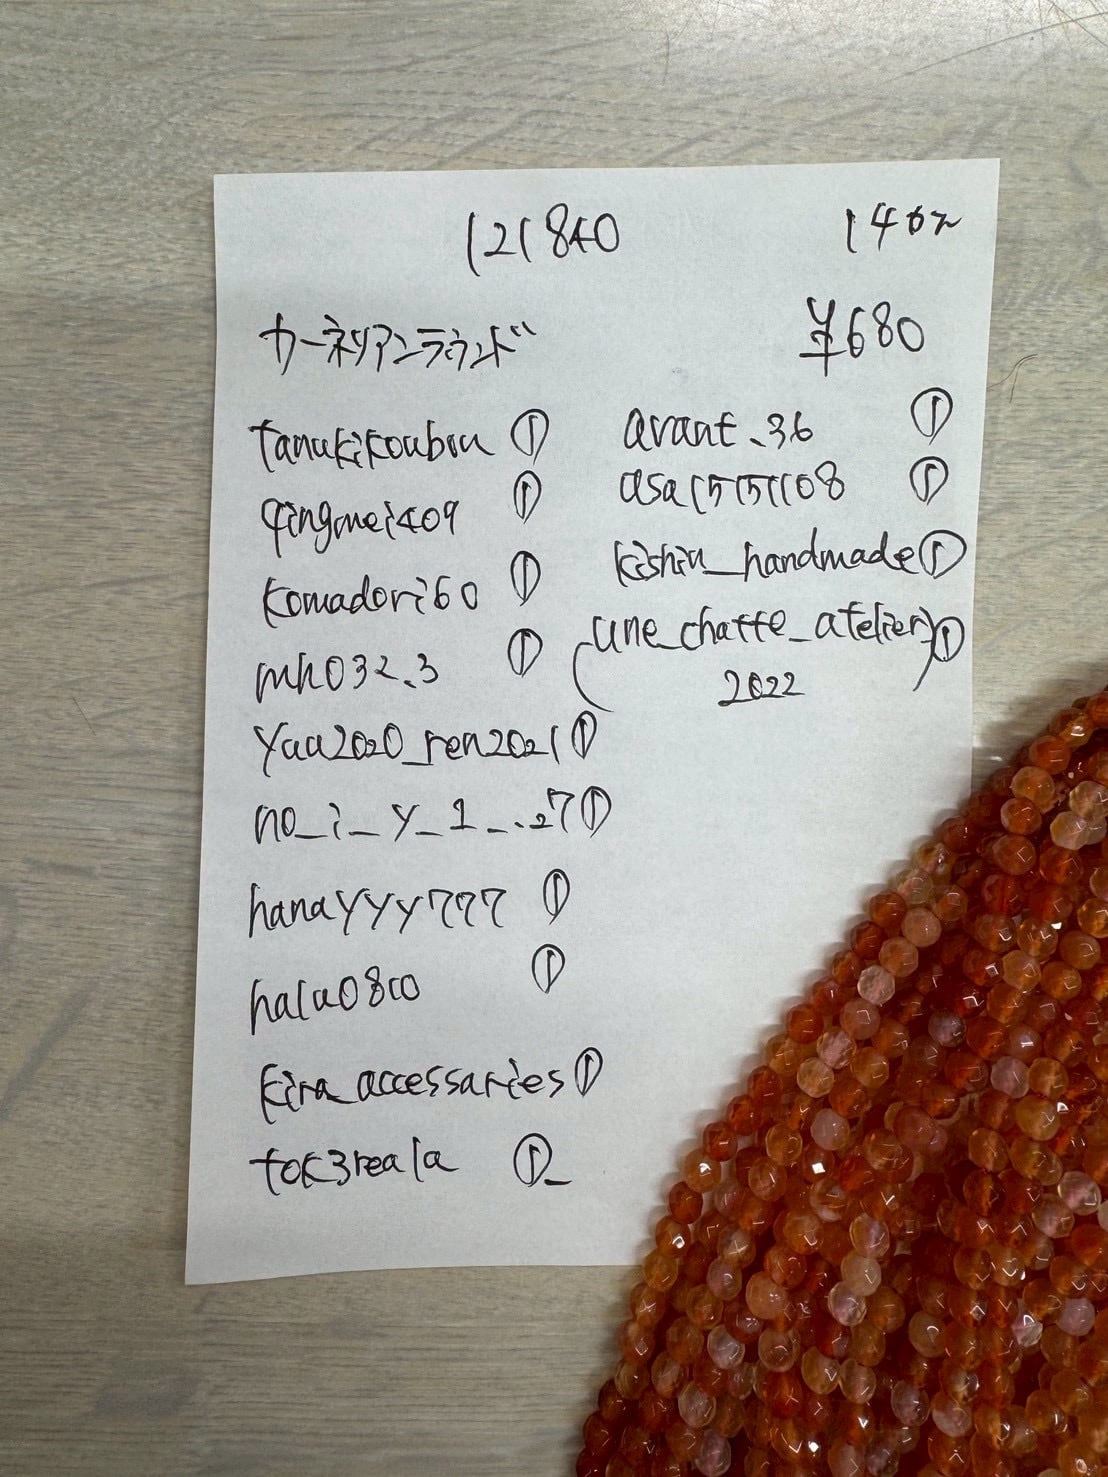 121840
140z
カーネリアンラウンド
¥680
tanukikoubou ①
qingmei409 ①
komadori60 ①
mh032.3 ①
yaa2020_ren2021 ①
no_i_y_1_.27 ①
hanayyy777 ①
hala0810 ①
kira_accessaries ①
tok3reala ①
avant.36 ①
asa15151108 ①
kishin_handmade ①
(une_chatte_atelier) ①
2022